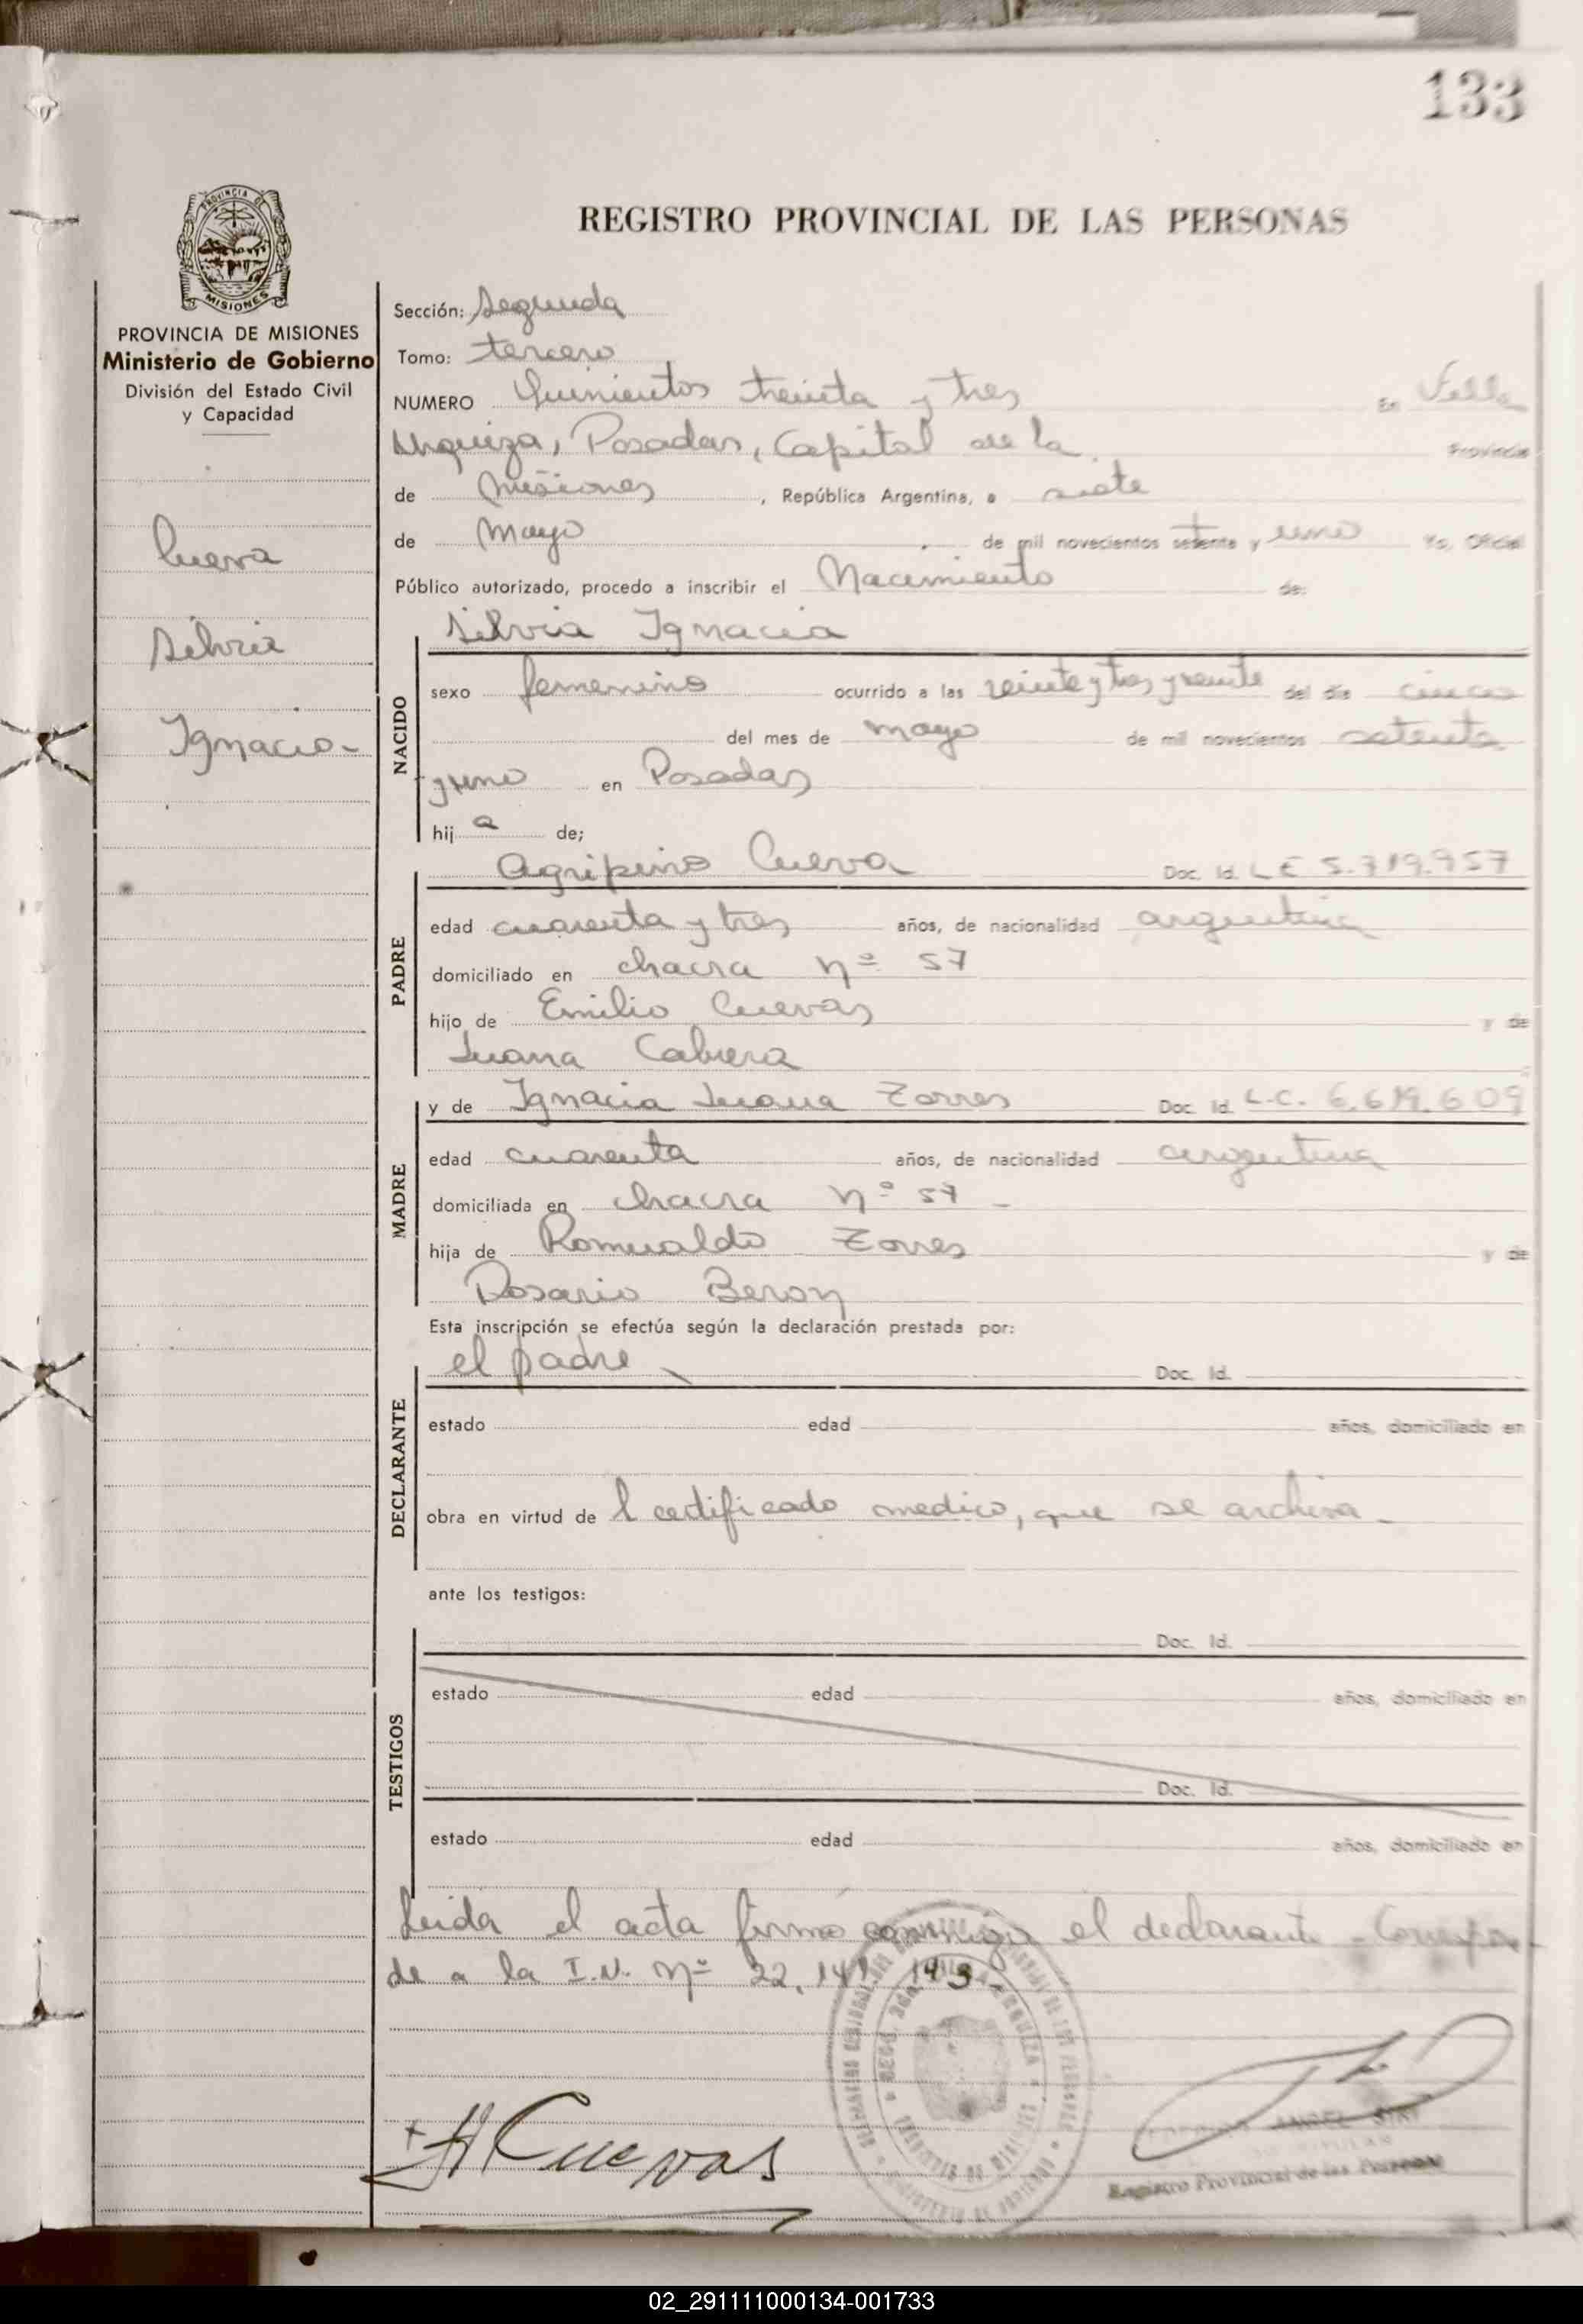 133
PROVINCIA DE
MISIONES
REGISTRO PROVINCIAL DE LAS PERSONAS
PROVINCIA DE MISIONES
Ministerio de Gobierno
División del Estado Civil
y Capacidad
Cueva
Silvia
Ignacia-
Sección: Segunda
Tomo: tercero
NUMERO Quinientos treinta y tres En Villa
Urquiza, Posadas, Capital de la Provincia
de Misiones, República Argentina, a siete
de Mayo de mil novecientos setenta y uno Yo, Oficial
Público autorizado, procedo a inscribir el Nacimiento de:
NACIDO
Silvia Ignacia
sexo femenino ocurrido a las veinte y tres y veinte del día cinco
del mes de mayo de mil novecientos setenta
y uno en Posadas
hij a de;
PADRE
Agripino Cueva Doc. Id. L E 5.719.957
edad cuarenta y tres años, de nacionalidad argentina
domiciliado en chacra nº 57
hijo de Emilio Cuevas y de
Juana Cabrera
MADRE
y de Ignacia Juana Torres Doc. Id. L.C. 6.619.609
edad cuarenta años, de nacionalidad argentina
domiciliada en chacra nº 57 -
hija de Romualdo Torres y de
Rosario Beron
Esta inscripción se efectúa según la declaración prestada por:
DECLARANTE
el padre Doc. Id.
estado edad años, domiciliado en
obra en virtud de l certificado medico, que se archiva -
ante los testigos:
TESTIGOS
Doc. Id.
estado edad años, domiciliado en
Doc. Id.
estado edad años, domiciliado en
Leida el acta firmó conmigo el declarante - Correspon-
de a la I.N. nº 22.141.143-
A Cuevas
ANGEL
Registro Provincial de las Personas
02_291111000134-001733